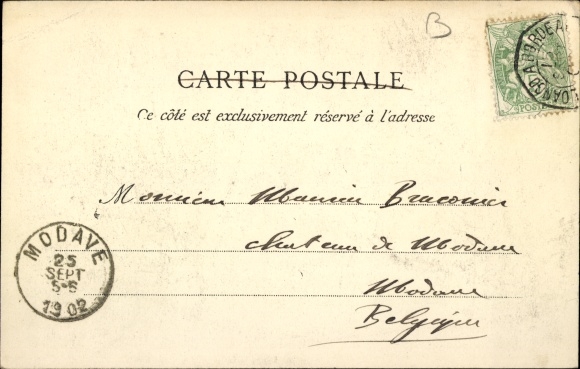 B
CARTE POSTALE
Ce côté est exclusivement réservé à l'adresse
Monsieur Maurice Braconier
chateau de Modave
Modave
Belgique
MODAVE
25
SEPT
5-6
1902
A BORDEA
POSTE